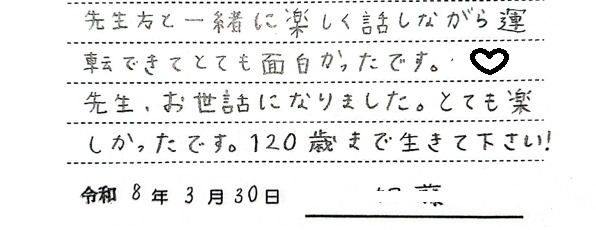 先生方と一緒に楽しく話しながら運
転できてとても面白かったです。♡
先生、お世話になりました。とても楽
しかったです。120歳まで生きて下さい!
令和 8 年 3 月 30 日